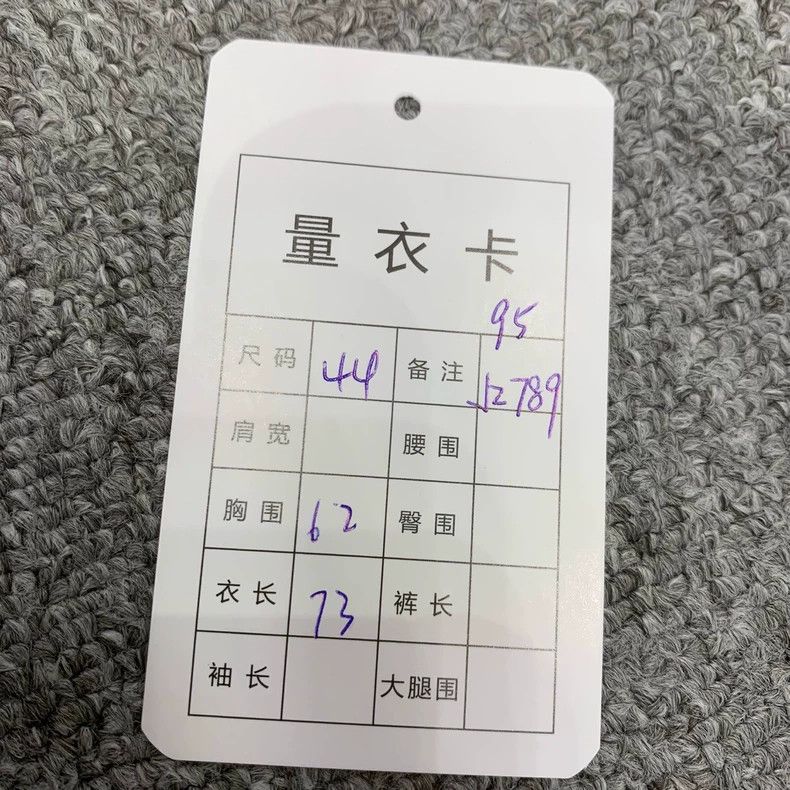 量衣卡
95
尺码 44 备注 J2789
肩宽 腰围
胸围 62 臀围
衣长 73 裤长
袖长 大腿围